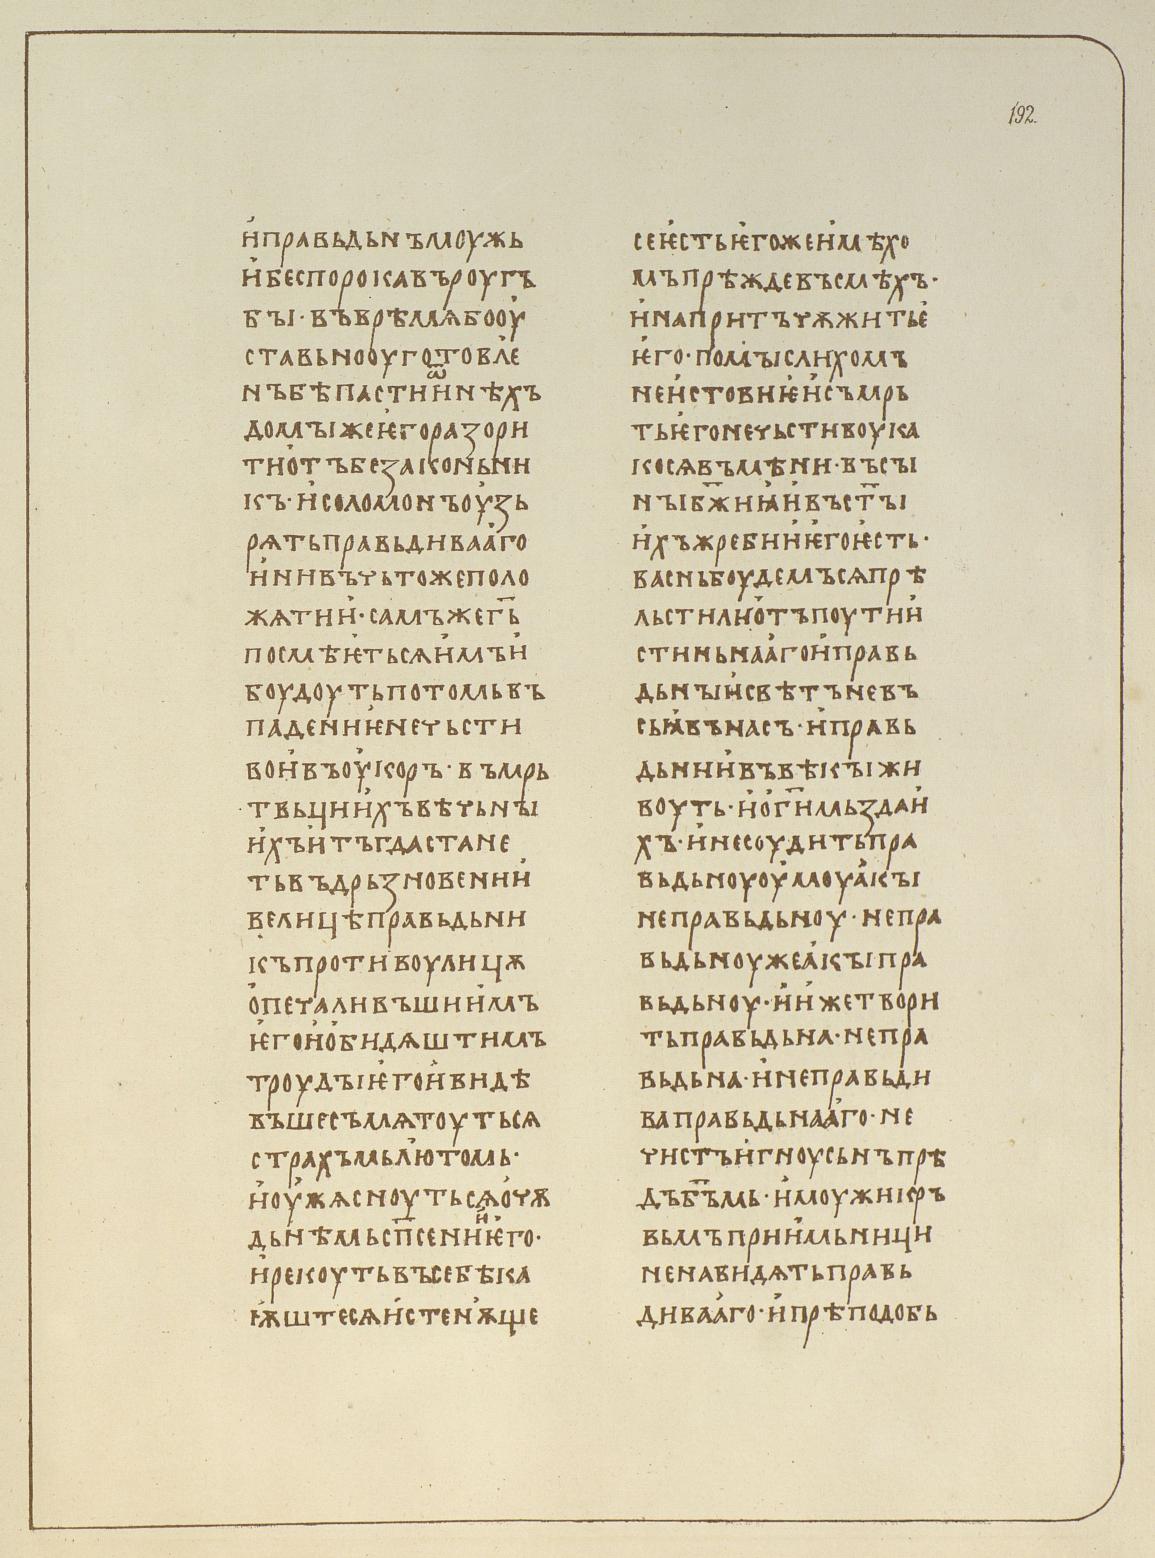 192.
и҆правьдьнъмоужь
и҆беспорокавъроугъ
бꙑ·въврѣмѧбооу҆
ставьнооуготовле
нъбѣпастии҆ѿнѣхъ
домꙑжеѥ҆горазори
тиѻ҆тъбезаконьни
къ·и҆соломонъоу҆зь
рѧтьправьдиваа҆го
и҆нивъчьтожеполо
жѧтии҆·самъжег҃ь
посмѣѥ҆тьсѧи҆мъи҆
боудоутьпотомьвъ
падениѥ҆нечьсти
вои҆въоу҆коръ·въмрь
твьциихъвѣчьнꙑ
и҆хъи҆тъгдастане
тьвъдрьзновении҆
велицѣправьдьни
къпротивоулицѫ
о҆печаливъшии҆мъ
ѥ҆гои҆о҆бидѧштимъ
троудꙑѥ҆гои҆видѣ
въшесъмѧтоутьсѧ
страхъмьлютомь·
и҆оу҆жѧсноутьсѧо҆чѫ
дьнѣмьсп҃сениі҆ѥ҆го·
и҆рекоутьвъсебѣка
ѭштесѧи҆стенѫще
сеѥ҆стьѥ҆гожеи҆мѣхо
мъпрѣждевъсмѣхъ·
и҆напритъчѫжитье҆
ѥ҆го·помꙑслихомъ
неи҆стовиѥ҆и҆съмрь
тьѥ҆гонечьстивоука
косѧвъмѣни·въсꙑ
нꙑбж҃иꙗ҆и҆въст҃ꙑ
и҆хъжребии҆ѥ҆гоѥ҆сть·
васньбоудемъсѧпрѣ
льстилиѻ҆тъпоутии҆
стиньнаа҆гои҆правь
дьнꙑи҆свѣтъневъ
сьꙗ҆вънасъ·и҆правь
дьнии҆въвѣкꙑжи
воуть·и҆о҆г҃и҆мьздаи҆
хъ·и҆несоудитьпра
вьдьноуоу҆моуа҆кꙑ
неправьдьноу·непра
вьдьноужеа҆кꙑпра
вьдьноу·и҆и҆жетвори
тьправьдьна·непра
вьдьна·и҆неправьди
ваправьдьнаа҆го·не
чистъи҆гноусьнъпрѣ
дъб҃ъмь·и҆моужикръ
вьмъприи҆мьници
ненавидѧтьправь
диваа҆го·и҆прѣподобь